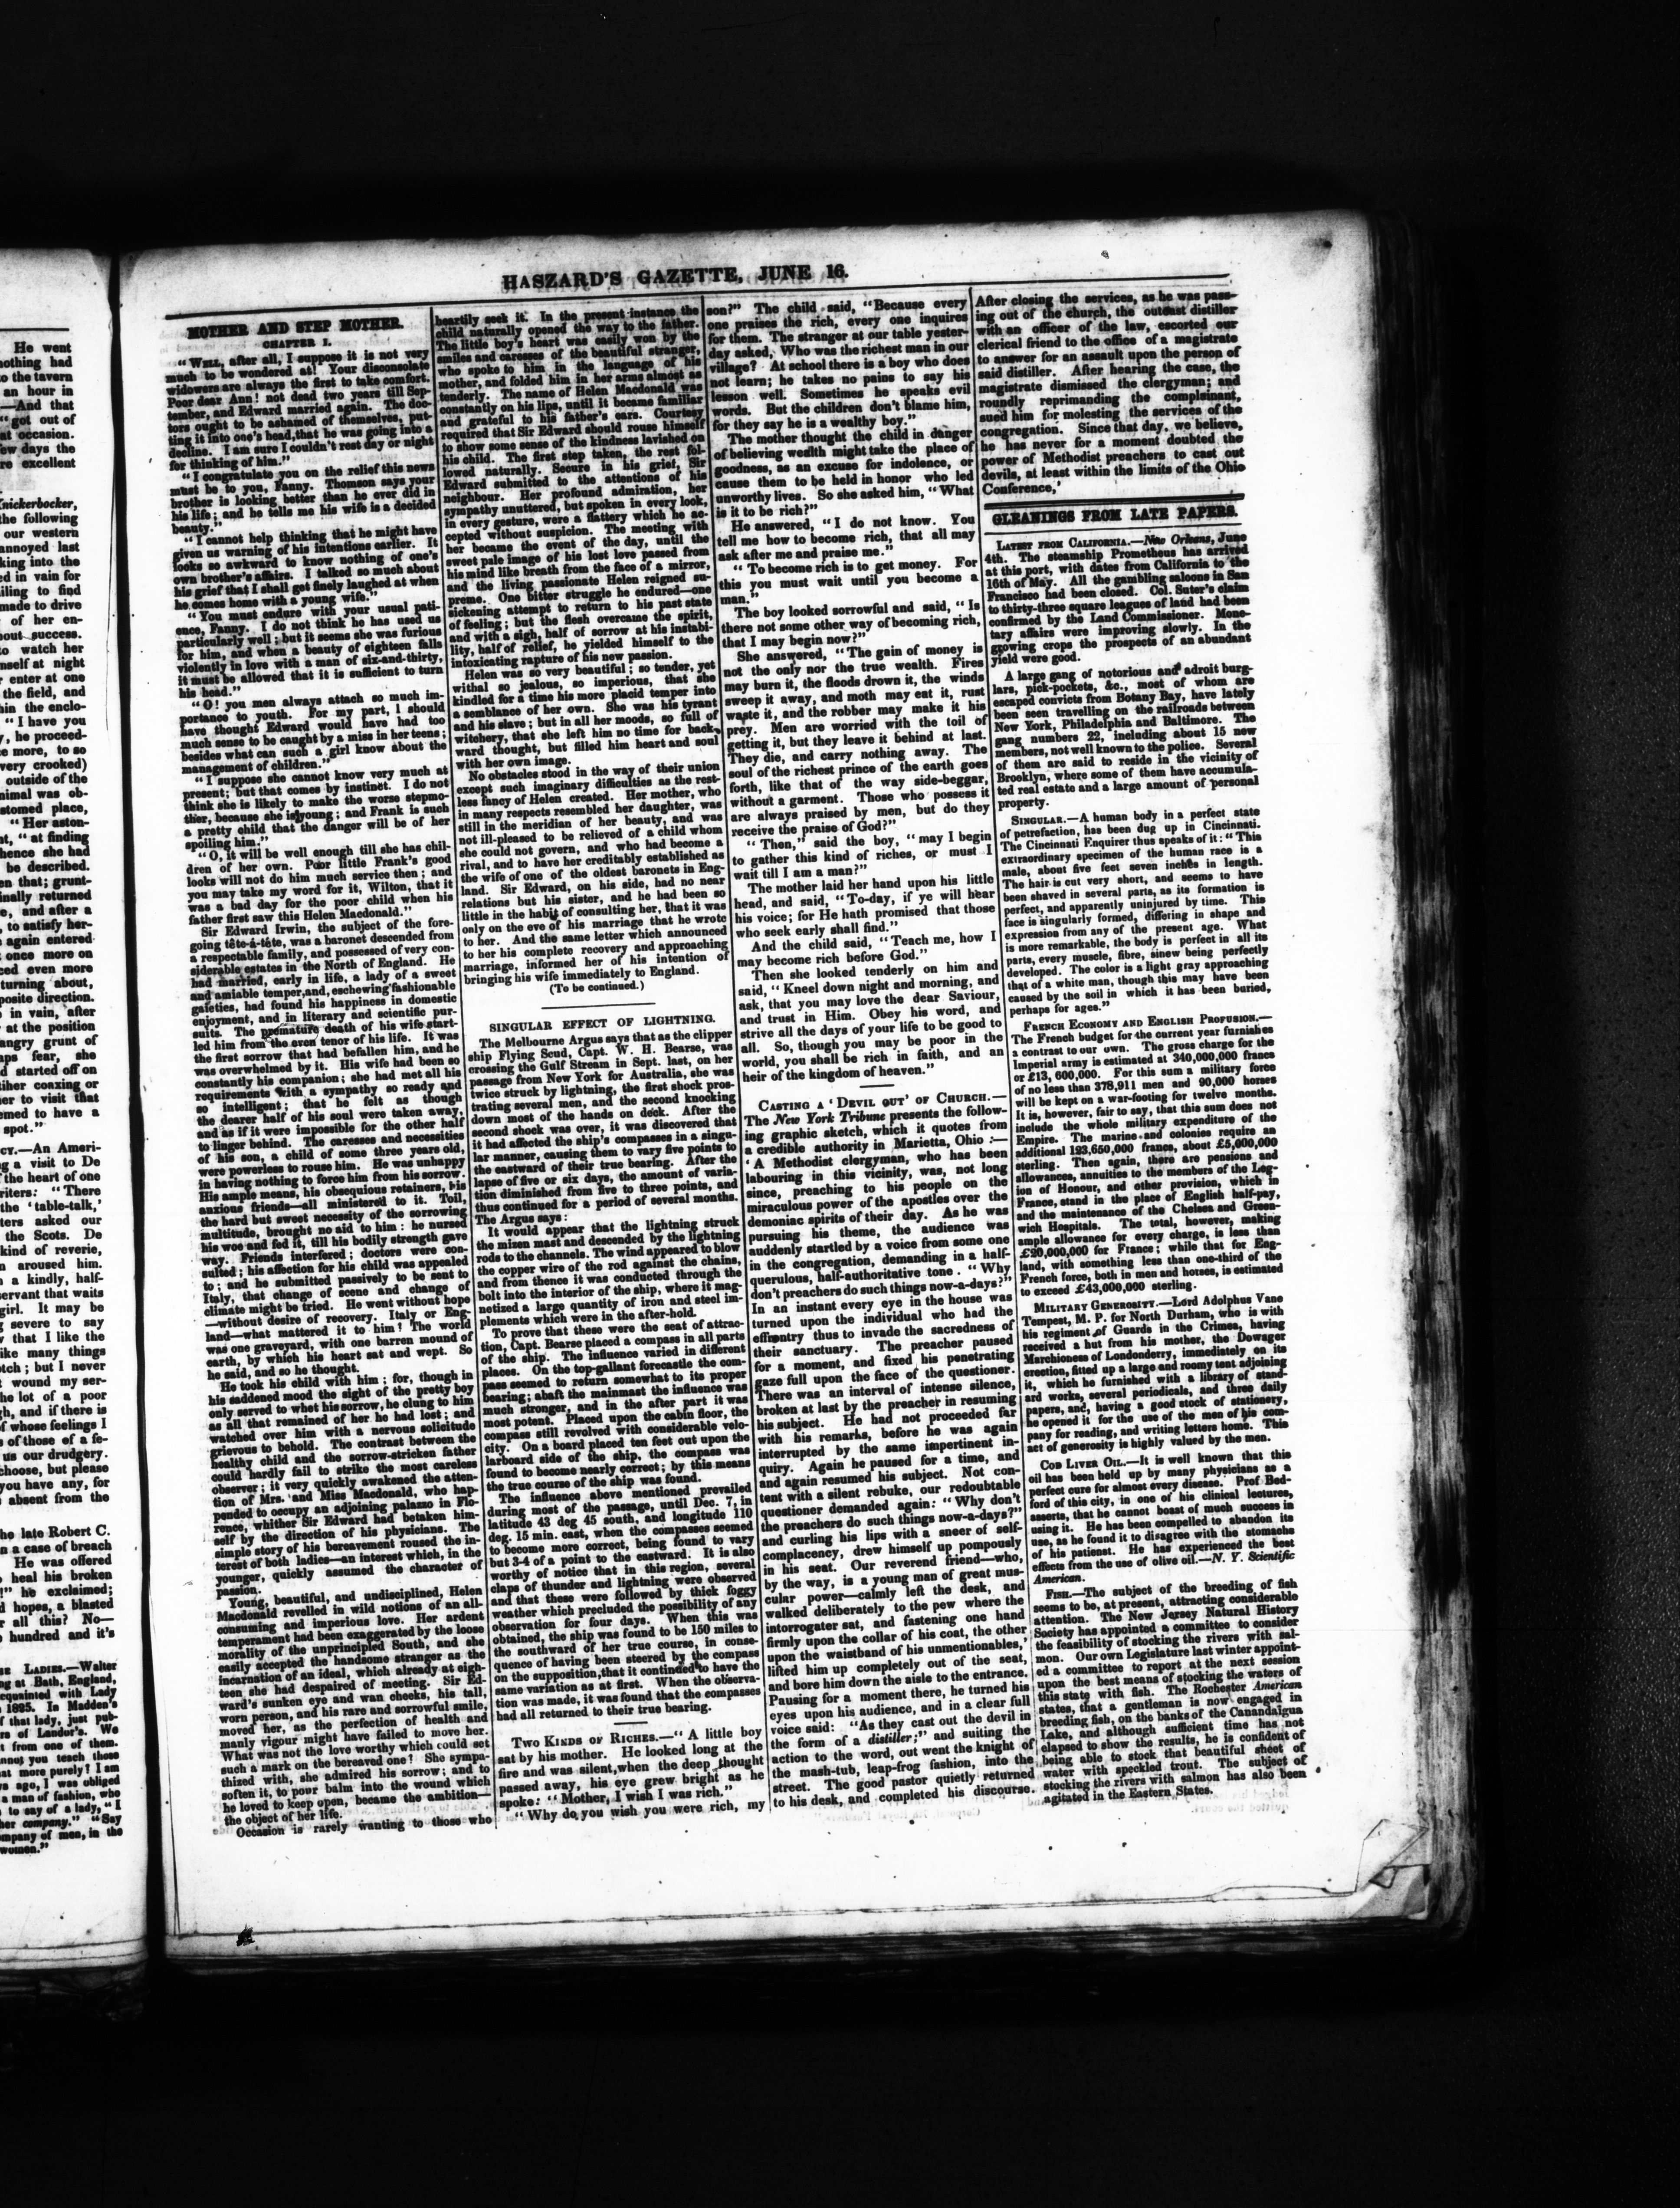 He went
nothing had
to the tavern
an hour in
—And that
"got out of
at occasion.
few days the
re excellent
Knickerbocker,
the following
our western
annoyed last
king into the
ed in vain for
iling to find
made to drive
of her en-
out success.
to watch her
mself at night
enter at one
the field, and
hin the enclo-
"I have you
, he proceed-
ce more, to so
very crooked)
outside of the
nimal was ob-
stomed place,
"Her aston-
nt, "at finding
hence she had
be described.
en that; grunt-
inally returned
e, and after a
, to satisfy her-
again entered
once more on
ced even more
turning about,
posite direction.
in vain, after
at the position
angry grunt of
aps fear, she
d started off on
ither coaxing or
er to visit that
emed to have a
spot."
CY.—An Ameri-
g a visit to De
the heart of one
riters: "There
the 'table-talk,'
ters asked our
the Scots. De
kind of reverie,
n aroused him.
a kindly, half-
servant that waits
girl. It may be
g severe to say
y that I like the
ike many things
otch; but I never
t wound my ser-
he lot of a poor
gh, and if there is
of whose feelings I
s of those of a fe-
us our drudgery.
choose, but please
you have any, for
absent from the
he late Robert C.
n a case of breach
He was offered
heal his broken
!" he exclaimed;
d hopes, a blasted
r all this? No—
hundred and it's
HE LADIES.—Walter
ng at Bath, England,
cquainted with Lady
1825. In Madden's
f that lady, just pub-
rs of Landor's. We
t from one of them.
nnot you teach these
at more purely? I am
rs ago, I was obliged
a man of fashion, who
to say of a lady, "I
her company." "Say
mpany of men, in the
women."
HASZARD'S GAZETTE, JUNE 16.
MOTHER AND STEP MOTHER.
CHAPTER I.
"WELL, after all, I suppose it is not very
much to be wondered at! Your disconsolate
widowers are always the first to take comfort.
Poor dear Ann! not dead two years till Sep-
tember, and Edward married again. The doc-
tors ought to be ashamed of themselves, put-
ting it into one's head, that he was going into a
decline. I am sure I couldn't rest day or night
for thinking of him."
"I congratulate you on the relief this news
must be to you, Fanny. Thomson says your
brother is looking better than he ever did in
his life; and he tells me his wife is a decided
beauty."
"I cannot help thinking that he might have
given us warning of his intentions earlier. It
looks so awkward to know nothing of one's
own brother's affairs. I talked so much about
his grief that I shall get finely laughed at when
he comes home with a young wife."
"You must endure with your usual pati-
ence, Fanny. I do not think he has used us
particularly well; but it seems she was furious
for him, and when a beauty of eighteen falls
violently in love with a man of six-and-thirty,
it must be allowed that it is sufficient to turn
his head."
"O! you men always attach so much im-
portance to youth. For my part, I should
have thought Edward would have had too
much sense to be caught by a miss in her teens;
besides what can such a girl know about the
management of children."
"I suppose she cannot know very much at
present; but that comes by instinct. I do not
think she is likely to make the worse stepmo-
ther, because she is young; and Frank is such
a pretty child that the danger will be of her
spoiling him."
"O, it will be well enough till she has chil-
dren of her own. Poor little Frank's good
looks will not do him much service then; and
you may take my word for it, Wilton, that it
was a bad day for the poor child when his
father first saw this Helen Macdonald."
Sir Edward Irwin, the subject of the fore-
going tête-á-téte, was a baronet descended from
a respectable family, and possessed of very con-
siderable estates in the North of England. He
had married, early in life, a lady of a sweet
and amiable temper, and, eschewing fashionable
gaieties, had found his happiness in domestic
enjoyment, and in literary and scientific pur-
suits. The premature death of his wife start-
led him from the even tenor of his life. It was
the first sorrow that had befallen him, and he
was overwhelmed by it. His wife had been so
constantly his companion; she had met all his
requirements with a sympathy so ready and
so intelligent; that he felt as though
the dearer half of his soul were taken away,
and as if it were impossible for the other half
to linger behind. The caresses and necessities
of his son, a child of some three years old,
were powerless to rouse him. He was unhappy
in having nothing to force him from his sorrow.
His ample means, his obsequious retainers, his
anxious friends—all ministered to it. Toil,
the hard but sweet necessity of the sorrowing
multitude, brought no aid to him: he nursed
his woe and fed it, till his bodily strength gave
way. Friends interfered; doctors were con-
sulted; his affection for his child was appealed
to; and he submitted passively to be sent to
Italy, that change of scene and change of
climate might be tried. He went without hope
—without desire of recovery. Italy or Eng-
land—what mattered it to him! The world
was one graveyard, with one barren mound of
earth, by which his heart sat and wept. So
he said, and so he thought.
He took his child with him; for, though in
his saddened mood the sight of the pretty boy
only served to whet his sorrow, he clung to him
as all that remained of her he had lost; and
watched over him with a nervous solicitude
grievous to behold. The contrast between the
healthy child and the sorrow-stricken father
could hardly fail to strike the most careless
observer; it very quickly awakened the atten-
tion of Mrs. and Miss Macdonald, who hap-
pened to occupy an adjoining palazzo in Flo-
rence, whither Sir Edward had betaken him-
self by the direction of his physicians. The
simple story of his bereavement roused the in-
terest of both ladies—an interest which, in the
younger, quickly assumed the character of
passion.
Young, beautiful, and undisciplined, Helen
Macdonald revelled in wild notions of an all-
consuming and imperious love. Her ardent
temperament had been exaggerated by the loose
morality of the unprincipled South, and she
easily accepted the handsome stranger as the
incarnation of an ideal, which already at eigh-
teen she had despaired of meeting. Sir Ed-
ward's sunken eye and wan cheeks, his tall,
worn person, and his rare and sorrowful smile,
moved her, as the perfection of health and
manly vigour might have failed to move her.
What was not the love worthy which could set
such a mark on the bereaved one? She sympa-
thized with, she admired his sorrow; and to
soften it, to pour balm into the wound which
he loved to keep open, became the ambition—
the object of her life.
Occasion is rarely wanting to those who
heartily seek it. In the present instance the
child naturally opened the way to the father.
The little boy's heart was easily won by the
smiles and caresses of the beautiful stranger,
who spoke to him in the language of his
mother, and folded him in her arms almost as
tenderly. The name of Helen Macdonald was
constantly on his lips, until it became familiar
and grateful to his father's ears. Courtesy
required that Sir Edward should rouse himself
to show some sense of the kindness lavished on
his child. The first step taken, the rest fol-
lowed naturally. Secure in his grief, Sir
Edward submitted to the attentions of his
neighbour. Her profound admiration, her
sympathy unuttered, but spoken in every look,
in every gesture, were a flattery which he ac-
cepted without suspicion. The meeting with
her became the event of the day, until the
sweet pale image of his lost love passed from
his mind like breath from the face of a mirror,
and the living passionate Helen reigned su-
preme. One bitter struggle he endured—one
sickening attempt to return to his past state
of feeling; but the flesh overcame the spirit,
and with a sigh, half of sorrow at his instabi-
lity, half of relief, he yielded himself to the
intoxicating rapture of his new passion.
Helen was so very beautiful; so tender, yet
withal so jealous, so imperious, that she
kindled for a time his more placid temper into
a semblance of her own. She was his tyrant
and his slave; but in all her moods, so full of
witchery, that she left him no time for back-
ward thought, but filled him heart and soul
with her own image.
No obstacles stood in the way of their union
except such imaginary difficulties as the rest-
less fancy of Helen created. Her mother, who
in many respects resembled her daughter, was
still in the meridian of her beauty, and was
not ill-pleased to be relieved of a child whom
she could not govern, and who had become a
rival, and to have her creditably established as
the wife of one of the oldest baronets in Eng-
land. Sir Edward, on his side, had no near
relations but his sister, and he had been so
little in the habit of consulting her, that it was
only on the eve of his marriage that he wrote
to her. And the same letter which announced
to her his complete recovery and approaching
marriage, informed her of his intention of
bringing his wife immediately to England.
(To be continued.)
SINGULAR EFFECT OF LIGHTNING.
The Melbourne Argus says that as the clipper
ship Flying Scud, Capt. W. H. Bearse, was
crossing the Gulf Stream in Sept. last, on her
passage from New York for Australia, she was
twice struck by lightning, the first shock pros-
trating several men, and the second knocking
down most of the hands on deck. After the
second shock was over, it was discovered that
it had affected the ship's compasses in a singu-
lar manner, causing them to vary five points to
the eastward of their true bearing. After the
lapse of five or six days, the amount of varia-
tion diminished from five to three points, and
thus continued for a period of several months.
The Argus says:
It would appear that the lightning struck
the mizen mast and descended by the lightning
rods to the channels. The wind appeared to blow
the copper wire of the rod against the chains,
and from thence it was conducted through the
bolt into the interior of the ship, where it mag-
netized a large quantity of iron and steel im-
plements which were in the after-hold.
To prove that these were the seat of attrac-
tion, Capt. Bearse placed a compass in all parts
of the ship. The influence varied in different
places. On the top-gallant forecastle the com-
pass seemed to return somewhat to its proper
bearing; abaft the mainmast the influence was
much stronger, and in the after part it was
most potent. Placed upon the cabin floor, the
compass still revolved with considerable velo-
city. On a board placed ten feet out upon the
larboard side of the ship, the compass was
found to become nearly correct; by this means
the true course of the ship was found.
The influence above mentioned prevailed
during most of the passage, until Dec. 7, in
latitude 43 deg 45 south, and longitude 110
deg. 15 min. east, when the compasses seemed
to become more correct, being found to vary
but 3-4 of a point to the eastward. It is also
worthy of notice that in this region, several
claps of thunder and lightning were observed
and that these were followed by thick foggy
weather which precluded the possibility of any
observation for four days. When this was
obtained, the ship was found to be 150 miles to
the southward of her true course, in conse-
quence of having been steered by the compass
on the supposition, that it continued to have the
same variation as at first. When the observa-
tion was made, it was found that the compasses
had all returned to their true bearing.
TWO KINDS OF RICHES.—"A little boy
sat by his mother. He looked long at the
fire and was silent, when the deep thought
passed away, his eye grew bright as he
spoke: "Mother, I wish I was rich."
"Why do you wish you were rich, my
son?" The child said, "Because every
one praises the rich, every one inquires
for them. The stranger at our table yester-
day asked, Who was the richest man in our
village? At school there is a boy who does
not learn; he takes no pains to say his
lesson well. Sometimes he speaks evil
words. But the children don't blame him,
for they say he is a wealthy boy."
The mother thought the child in danger
of believing wealth might take the place of
goodness, as an excuse for indolence, or
cause them to be held in honor who led
unworthy lives. So she asked him, "What
is it to be rich?"
He answered, "I do not know. You
tell me how to become rich, that all may
ask after me and praise me."
"To become rich is to get money. For
this you must wait until you become a
man."
The boy looked sorrowful and said, "Is
there not some other way of becoming rich,
that I may begin now?"
She answered, "The gain of money is
not the only nor the true wealth. Fires
may burn it, the floods drown it, the winds
sweep it away, and moth may eat it, rust
waste it, and the robber may make it his
prey. Men are worried with the toil of
getting it, but they leave it behind at last.
They die, and carry nothing away. The
soul of the richest prince of the earth goes
forth, like that of the way side-beggar,
without a garment. Those who possess it
are always praised by men, but do they
receive the praise of God?"
"Then," said the boy, "may I begin
to gather this kind of riches, or must I
wait till I am a man?"
The mother laid her hand upon his little
head, and said, "To-day, if ye will hear
his voice; for He hath promised that those
who seek early shall find."
And the child said, "Teach me, how I
may become rich before God."
Then she looked tenderly on him and
said, "Kneel down night and morning, and
ask, that you may love the dear Saviour,
and trust in Him. Obey his word, and
strive all the days of your life to be good to
all. So, though you may be poor in the
world, you shall be rich in faith, and an
heir of the kingdom of heaven."
CASTING A 'DEVIL OUT' OF CHURCH.—
The New York Tribune presents the follow-
ing graphic sketch, which it quotes from
a credible authority in Marietta, Ohio:—
'A Methodist clergyman, who has been
labouring in this vicinity, was, not long
since, preaching to his people on the
miraculous power of the apostles over the
demoniac spirits of their day. As he was
pursuing his theme, the audience was
auddenly startled by a voice from some one
in the congregation, demanding in a half-
querulous, half-authoritative tone. "Why
don't preachers do such things now-a-days?"
In an instant every eye in the house was
turned upon the individual who had the
effrontry thus to invade the sacredness of
their sanctuary. The preacher paused
for a moment, and fixed his penetrating
gaze full upon the face of the questioner.
There was an interval of intense silence,
broken at last by the preacher in resuming
his subject. He had not proceeded far
with his remarks, before he was again
interrupted by the same impertinent in-
quiry. Again he paused for a time, and
and again resumed his subject. Not con-
tent with a silent rebuke, our redoubtable
questioner demanded again: "Why don't
the preachers do such things now-a-days?"
and curling his lips with a sneer of self-
complacency, drew himself up pompously
in his seat. Our reverend friend—who,
by the way, is a young man of great mus-
cular power—calmly left the desk, and
walked deliberately to the pew where the
interrogater sat, and fastening one hand
firmly upon the collar of his coat, the other
upon the waistband of his unmentionables,'
lifted him up completely out of the seat,
and bore him down the aisle to the entrance.
Pausing for a moment there, he turned his
eyes upon his audience, and in a clear full
voice said: "As they cast out the devil in
the form of a distiller;" and suiting the
action to the word, out went the knight of
the mash-tub, leap-frog fashion, into the
street. The good pastor quietly returned
to his desk, and completed his discourse.
After closing the services, as he was pass-
ing out of the church, the outcast distiller
with an officer of the law, escorted our
clerical friend to the office of a magistrate
to answer for an assault upon the person of
said distiller. After hearing the case, the
magistrate dismissed the clergyman; and
roundly reprimanding the complainant,
sued him for molesting the services of the
congregation. Since that day, we believe,
he has never for a moment doubted the
power of Methodist preachers to cast out
devils, at least within the limits of the Ohio
Conference,'
GLEANINGS FROM LATE PAPERS.
LATEST FROM CALIFORNIA.—New Orleans, June
4th. The steamship Prometheus has arrived
at this port, with dates from California to the
16th of May. All the gambling saloons in San
Francisco had been closed. Col. Suter's claim
to thirty-three square leagues of land had been
confirmed by the Land Commissioner. Mone-
tary affairs were improving slowly. In the
growing crops the prospects of an abundant
yield were good.
A large gang of notorious and adroit burg-
lars, pick-pockets, &c., most of whom are
escaped convicts from Botany Bay, have lately
been seen travelling on the railroads between
New York, Philadelphia and Baltimore. The
gang numbers 22, including about 15 new
members, not well known to the police. Several
of them are said to reside in the vicinity of
Brooklyn, where some of them have accumula-
ted real estate and a large amount of personal
property.
SINGULAR.—A human body in a perfect state
of petrefaction, has been dug up in Cincinnati.
The Cincinnati Enquirer thus speaks of it: "This
extraordinary specimen of the human race is a
male, about five feet seven inches in length.
The hair is cut very short, and seems to have
been shaved in several parts, as its formation is
perfect, and apparently uninjured by time. This
face is singularly formed, differing in shape and
expression from any of the present age. What
is more remarkable, the body is perfect in all its
parts, every muscle, fibre, sinew being perfectly
developed. The color is a light gray approaching
that of a white man, though this may have been
caused by the soil in which it has been buried,
perhaps for ages."
FRENCH ECONOMY AND ENGLISH PROFUSION.—
The French budget for the current year furnishes
a contrast to our own. The gross charge for the
Imperial army is estimated at 340,000,000 francs
or £13, 600,000. For this sum a military force
of no less than 378,911 men and 90,000 horses
will be kept on a war-footing for twelve months.
It is, however, fair to say, that this sum does not
include the whole military expenditure of the
Empire. The marine and colonies require an
additional 123,650,000 francs, about £5,000,000
sterling. Then again, there are pensions and
allowances, annuities to the members of the Leg-
ion of Honour, and other provision, which in
France, stand in the place of English half-pay,
and the maintenance of the Chelsea and Green-
wich Hospitals. The total, however, making
ample allowance for every charge, is less than
£20,000,000 for France; while that for Eng-
land, with something less than one-third of the
French force, both in men and horses, is estimated
to exceed £43,000,000 sterling.
MILITARY GENEROSITY.—Lord Adolphus Vane
Tempest, M. P. for North Durham, who is with
his regiment of Guards in the Crimea, having
received a hut from his mother, the Dowager
Marchioness of Londonderry, immediately on its
erection, fitted up a large and roomy tent adjoining
it, which he furnished with a library of stand-
ard works, several periodicals, and three daily
papers, and, having a good stock of stationery,
he opened it for the use of the men of his com-
pany for reading, and writing letters home. This
act of generosity is highly valued by the men.
COD LIVER OIL.—It is well known that this
oil has been held up by many physicians as a
perfect cure for almost every disease. Prof Bed-
ford of this city, in one of his clinical lectures,
asserts, that he cannot boast of much success in
using it. He has been compelled to abandon its
use, as he found it to disagree with the stomachs
of his patienst. He has experienced the best
effects from the use of olive oil.—N. Y. Scientific
American.
FISH.—The subject of the breeding of fish
seems to be, at present, attracting considerable
attention. The New Jersey Natural History
Society has appointed a committee to consider
the feasibility of stocking the rivers with sal-
mon. Our own Legislature last winter appoint-
ed a committee to report at the next session
upon the best means of stocking the waters of
this state with fish. The Rochester American
states, that a gentleman is now engaged in
breeding fish, on the banks of the Canandaigua
Lake, and although sufficient time has not
elapsed to show the results, he is confident of
being able to stock that beautiful sheet of
water with speckled trout. The subject of
stocking the rivers with salmon has also been
agitated in the Eastern States.